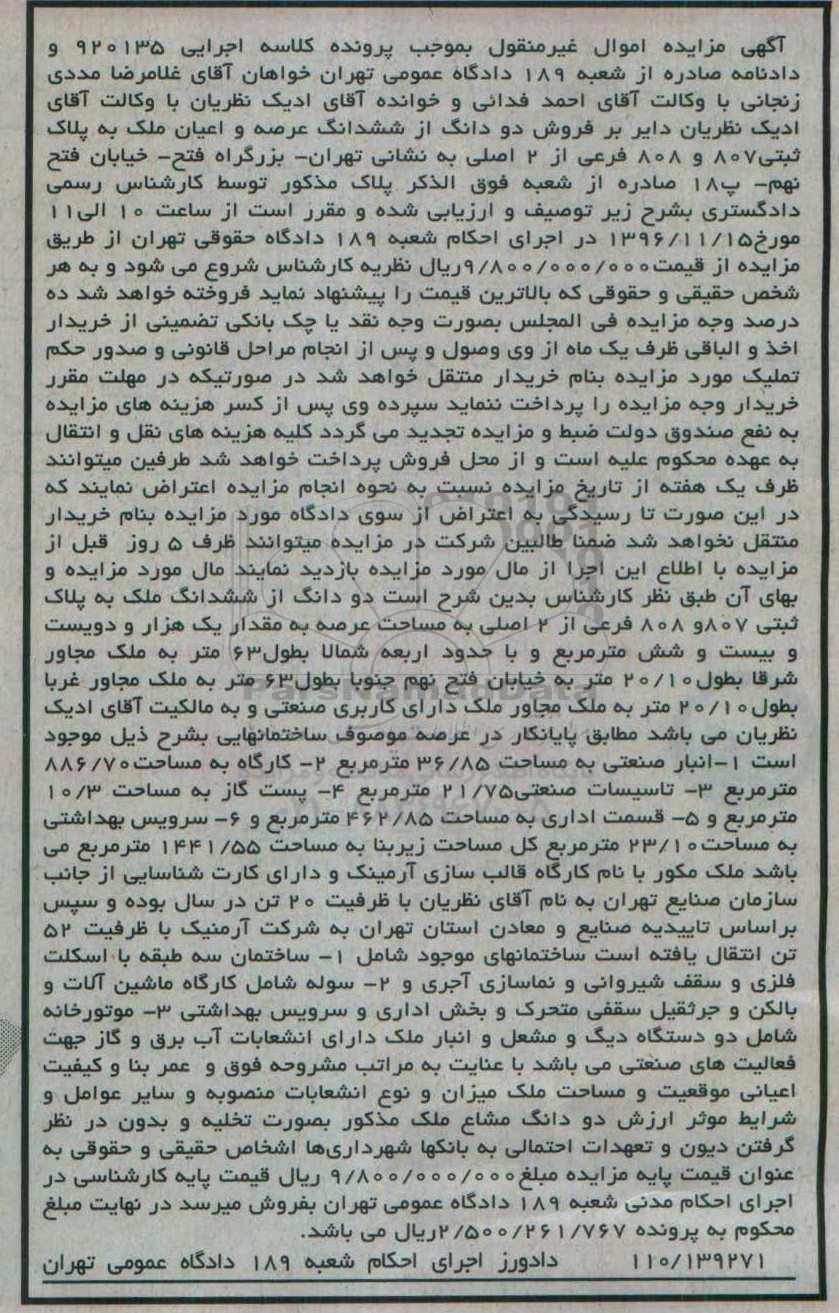 آگهی مزایده اموال غیرمنقول بموجب پرونده کلاسه اجرایی ۹۲۰۱۳۵ و
دادنامه صادره از شعبه ۱۸۹ دادگاه عمومی تهران خواهان آقای غلامرضا مددی
زنجانی با وکالت آقای احمد فدائی و خوانده آقای ادیک نظریان با وکالت آقای
ادیک نظریان دایر بر فروش دو دانگ از ششدانگ عرصه و اعیان ملک به پلاک
ثبتی۸۰۷ و ۸۰۸ فرعی از ۲ اصلی به نشانی تهران- بزرگراه فتح- خیابان فتح
نهم- پ۱۸ صادره از شعبه فوق الذکر پلاک مذکور توسط کارشناس رسمی
دادگستری بشرح زیر توصیف و ارزیابی شده و مقرر است از ساعت ۱۰ الی۱۱
مورخ۱۳۹۶/۱۱/۱۵ در اجرای احکام شعبه ۱۸۹ دادگاه حقوقی تهران از طریق
مزایده از قیمت۹/۸۰۰/۰۰۰/۰۰۰ریال نظریه کارشناس شروع می شود و به هر
شخص حقیقی و حقوقی که بالاترین قیمت را پیشنهاد نماید فروخته خواهد شد ده
درصد وجه مزایده فی المجلس بصورت وجه نقد یا چک بانکی تضمینی از خریدار
اخذ و الباقی ظرف یک ماه از وی وصول و پس از انجام مراحل قانونی و صدور حکم
تملیک مورد مزایده بنام خریدار منتقل خواهد شد در صورتیکه در مهلت مقرر
خریدار وجه مزایده را پرداخت ننماید سپرده وی پس از کسر هزینه های مزایده
به نفع صندوق دولت ضبط و مزایده تجدید می گردد کلیه هزینه های نقل و انتقال
به عهده محکوم علیه است و از محل فروش پرداخت خواهد شد طرفین میتوانند
ظرف یک هفته از تاریخ مزایده نسبت به نحوه انجام مزایده اعتراض نمایند که
در این صورت تا رسیدگی به اعتراض از سوی دادگاه مورد مزایده بنام خریدار
منتقل نخواهد شد ضمنا طالبین شرکت در مزایده میتوانند ظرف ۵ روز قبل از
مزایده با اطلاع این اجرا از مال مورد مزایده بازدید نمایند مال مورد مزایده و
بهای آن طبق نظر کارشناس بدین شرح است دو دانگ از ششدانگ ملک به پلاک
ثبتی ۸۰۷و ۸۰۸ فرعی از ۲ اصلی به مساحت عرصه به مقدار یک هزار و دویست
و بیست و شش مترمربع و با حدود اربعه شمالا بطول۶۳ متر به ملک مجاور
شرقا بطول۲۰/۱۰ متر به خیابان فتح نهم جنوبا بطول۶۳ متر به ملک مجاور غربا
بطول۲۰/۱۰ متر به ملک مجاور ملک دارای کاربری صنعتی و به مالکیت آقای ادیک
نظریان می باشد مطابق پایانکار در عرصه موصوف ساختمانهایی بشرح ذیل موجود
است ۱-انبار صنعتی به مساحت ۳۶/۸۵ مترمربع ۲- کارگاه به مساحت۸۸۶/۷۰
مترمربع ۳- تاسیسات صنعتی۲۱/۷۵ مترمربع ۴- پست گاز به مساحت ۱۰/۳
مترمربع و ۵- قسمت اداری به مساحت ۴۶۲/۸۵ مترمربع و ۶- سرویس بهداشتی
به مساحت۲۳/۱۰ مترمربع کل مساحت زیربنا به مساحت ۱۴۴۱/۵۵ مترمربع می
باشد ملک مکور با نام کارگاه قالب سازی آرمینک و دارای کارت شناسایی از جانب
سازمان صنایع تهران به نام آقای نظریان با ظرفیت ۲۰ تن در سال بوده و سپس
براساس تاییدیه صنایع و معادن استان تهران به شرکت آرمنیک با ظرفیت ۵۲
تن انتقال یافته است ساختمانهای موجود شامل ۱- ساختمان سه طبقه با اسکلت
فلزی و سقف شیروانی و نماسازی آجری و ۲- سوله شامل کارگاه ماشین آلات و
بالکن و جرثقیل سقفی متحرک و بخش اداری و سرویس بهداشتی ۳- موتورخانه
شامل دو دستگاه دیگ و مشعل و انبار ملک دارای انشعابات آب برق و گاز جهت
فعالیت های صنعتی می باشد با عنایت به مراتب مشروحه فوق و عمر بنا و کیفیت
اعیانی موقعیت و مساحت ملک میزان و نوع انشعابات منصوبه و سایر عوامل و
شرایط موثر ارزش دو دانگ مشاع ملک مذکور بصورت تخلیه و بدون در نظر
گرفتن دیون و تعهدات احتمالی به بانکها شهرداری‌ها اشخاص حقیقی و حقوقی به
عنوان قیمت پایه مزایده مبلغ۹/۸۰۰/۰۰۰/۰۰۰ ریال قیمت پایه کارشناسی در
اجرای احکام مدنی شعبه ۱۸۹ دادگاه عمومی تهران بفروش میرسد در نهایت مبلغ
محکوم به پرونده ۲/۵۰۰/۲۶۱/۷۶۷ریال می باشد.
۱۱۰/۱۳۹۲۷۱ دادورز اجرای احکام شعبه ۱۸۹ دادگاه عمومی تهران
ParsNamadData